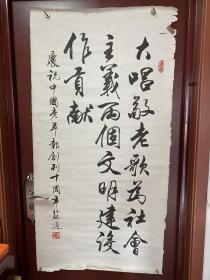 大唱敬老歌为社會
主義两個文明建设
作貢献
慶祝中國老年報創刊十周年 蘇適